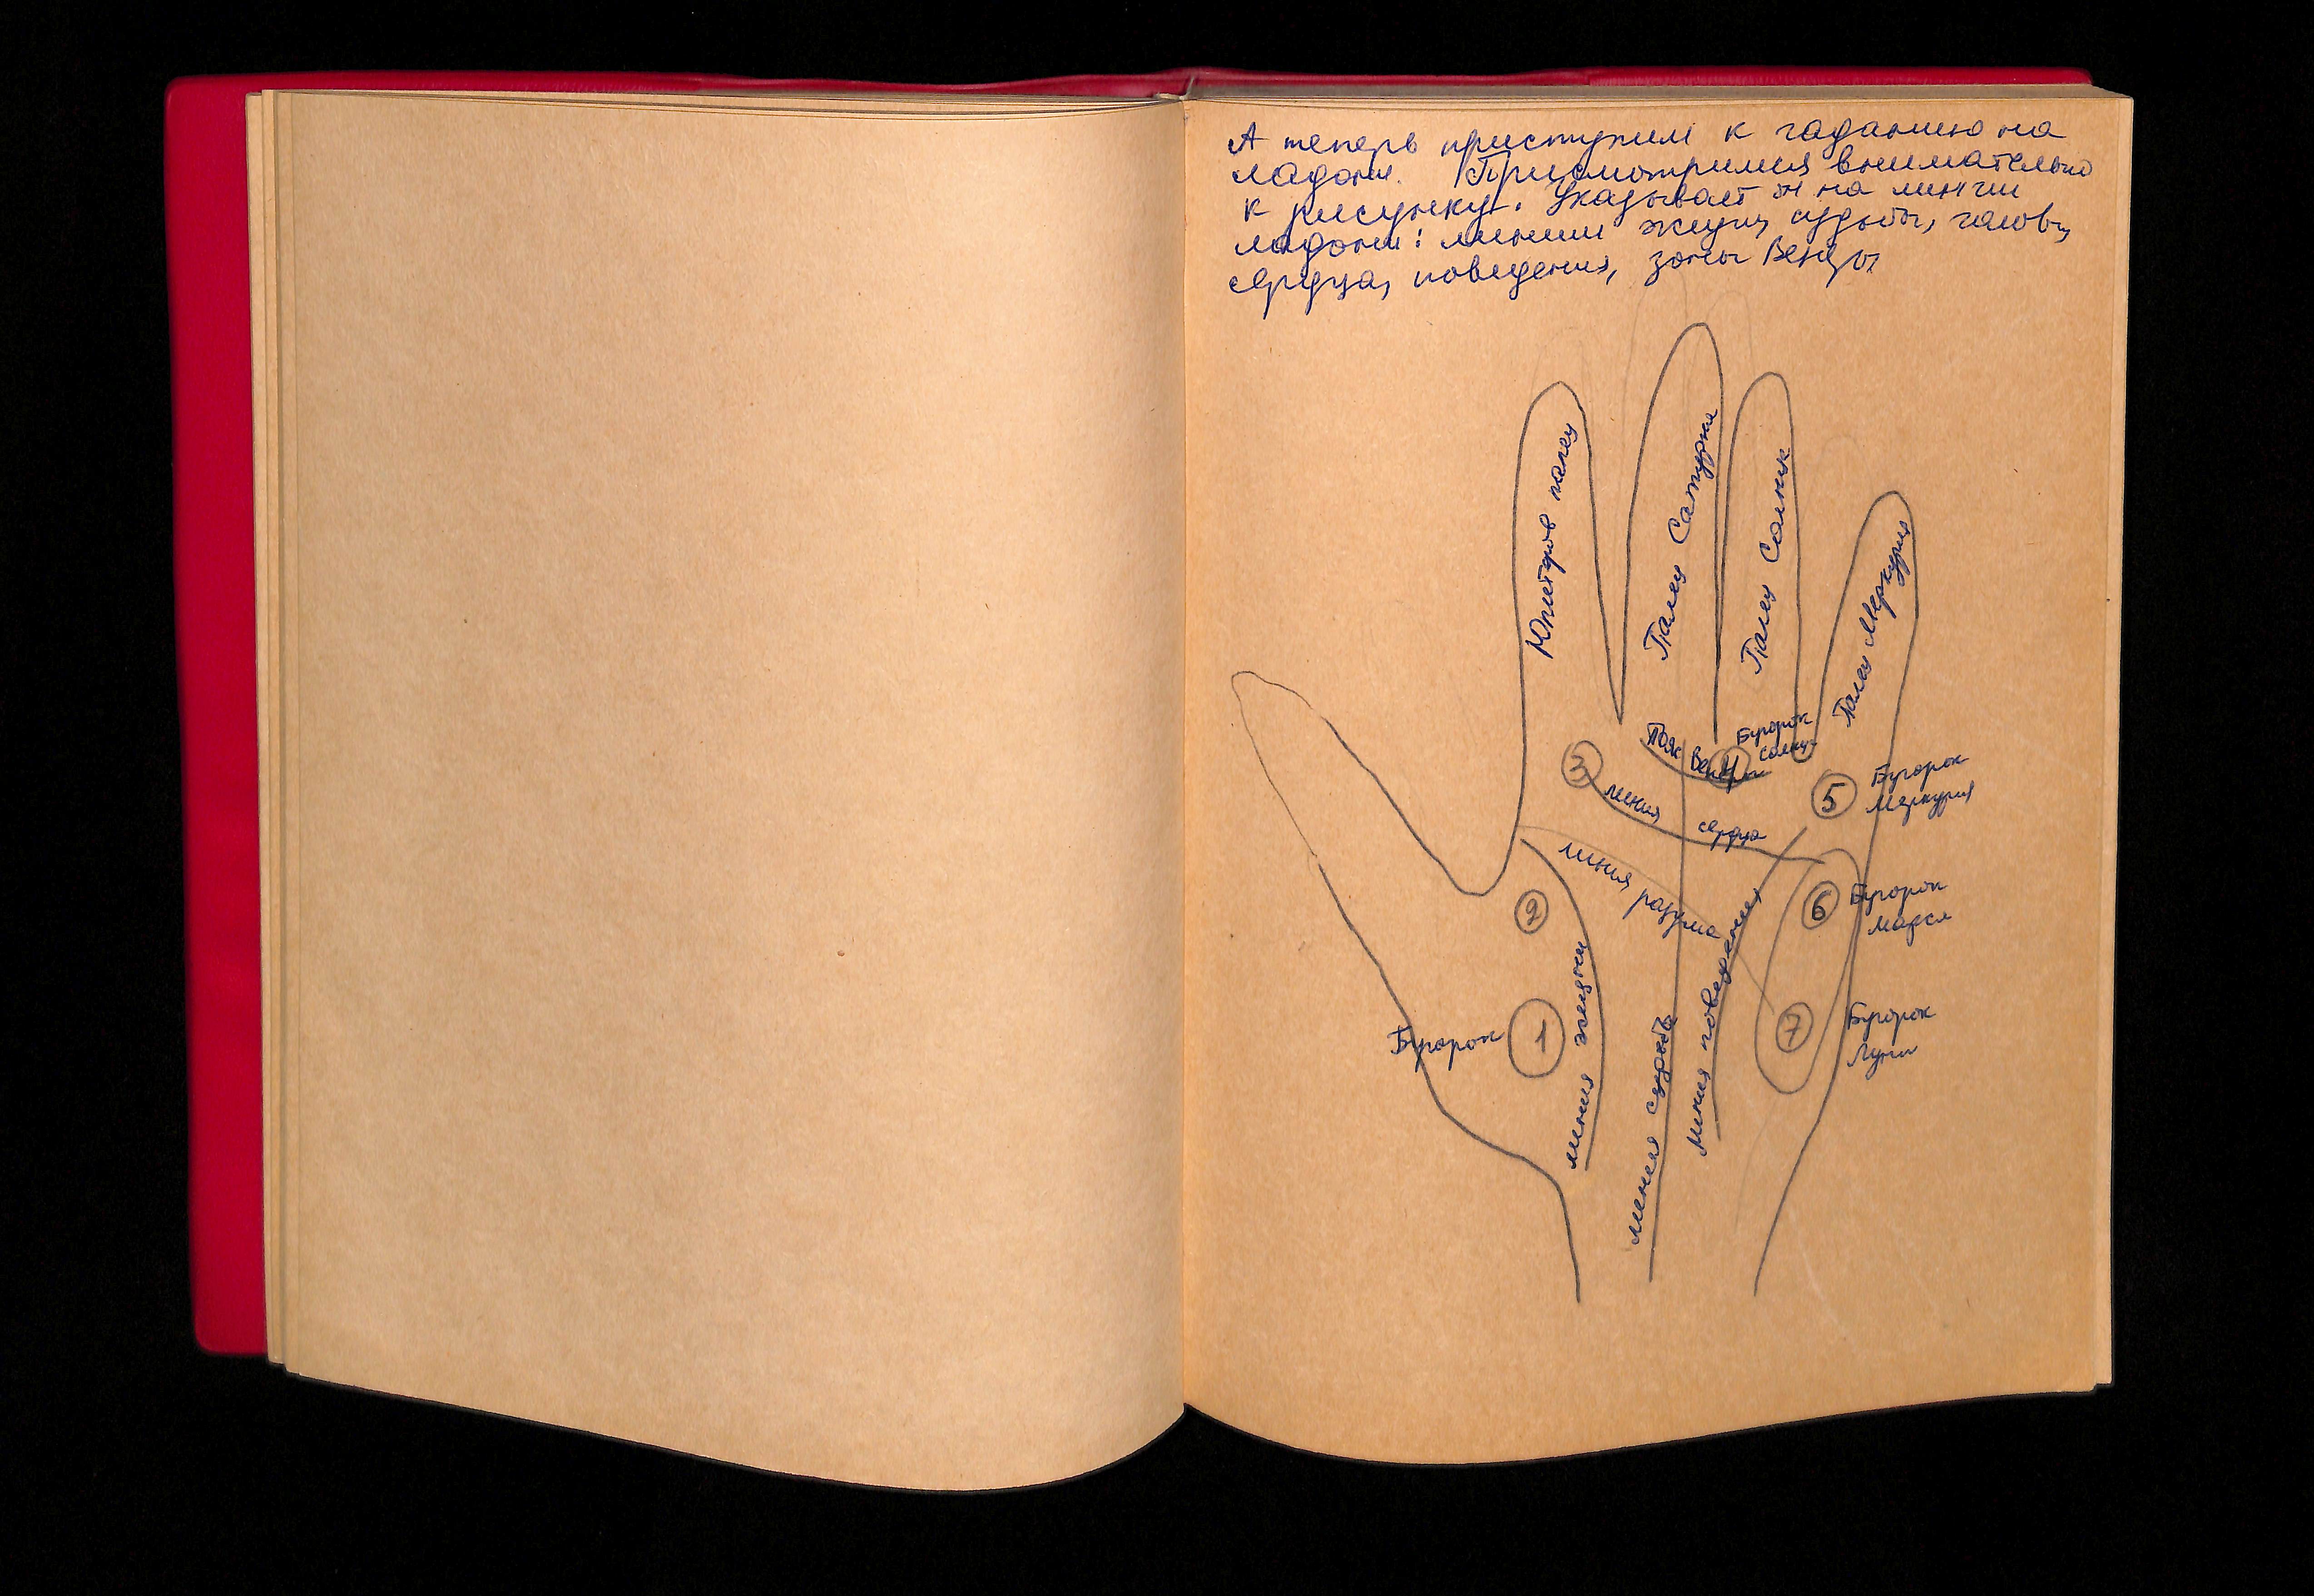 А теперь приступим к гаданию на
ладони. Присмотримся внимательно
к рисунку. Указывает он на линии
ладони: линии жизни, судьбы, головы,
сердца, поведения, зоны Венеры
Юпитеров палец
Палец Сатурна
Палец Солнца
Палец Меркурия
Пояс Венеры
Бугорок
солнца
3
4
5
Бугорок
Меркурия
линия сердца
линия разума
2
6
Бугорок
марса
линия жизни
линия судьбы
линия поведения
Бугорок
1
7
Бугорок
Луны